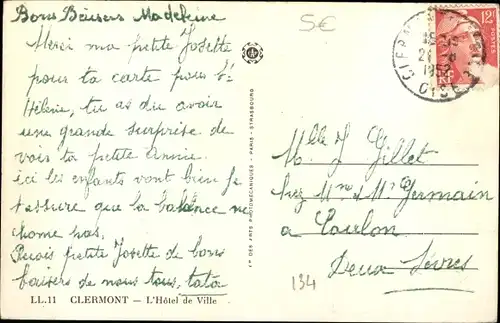 Bons Baisers Madeleine
Merci ma petite Josette
pour ta carte pour Ste
Hélène, tu as du avoir
une grande surprise de
voir ta petite Annie.
ici les enfants vont bien Je
t'assure que la balance ne
chome pas.
Reçois petite Josette de bons
baisers de nous tous, tata
LL.11 CLERMONT - L'Hôtel de Ville
5€
Cie DES ARTS PHOTOMÉCANIQUES - PARIS - STRASBOURG
12F
POSTES
RF
CLERMONT
1952
OISE
Melle J Gillet
chez Mme & Mr Germain
a Coulon
Deux Sèvres
134